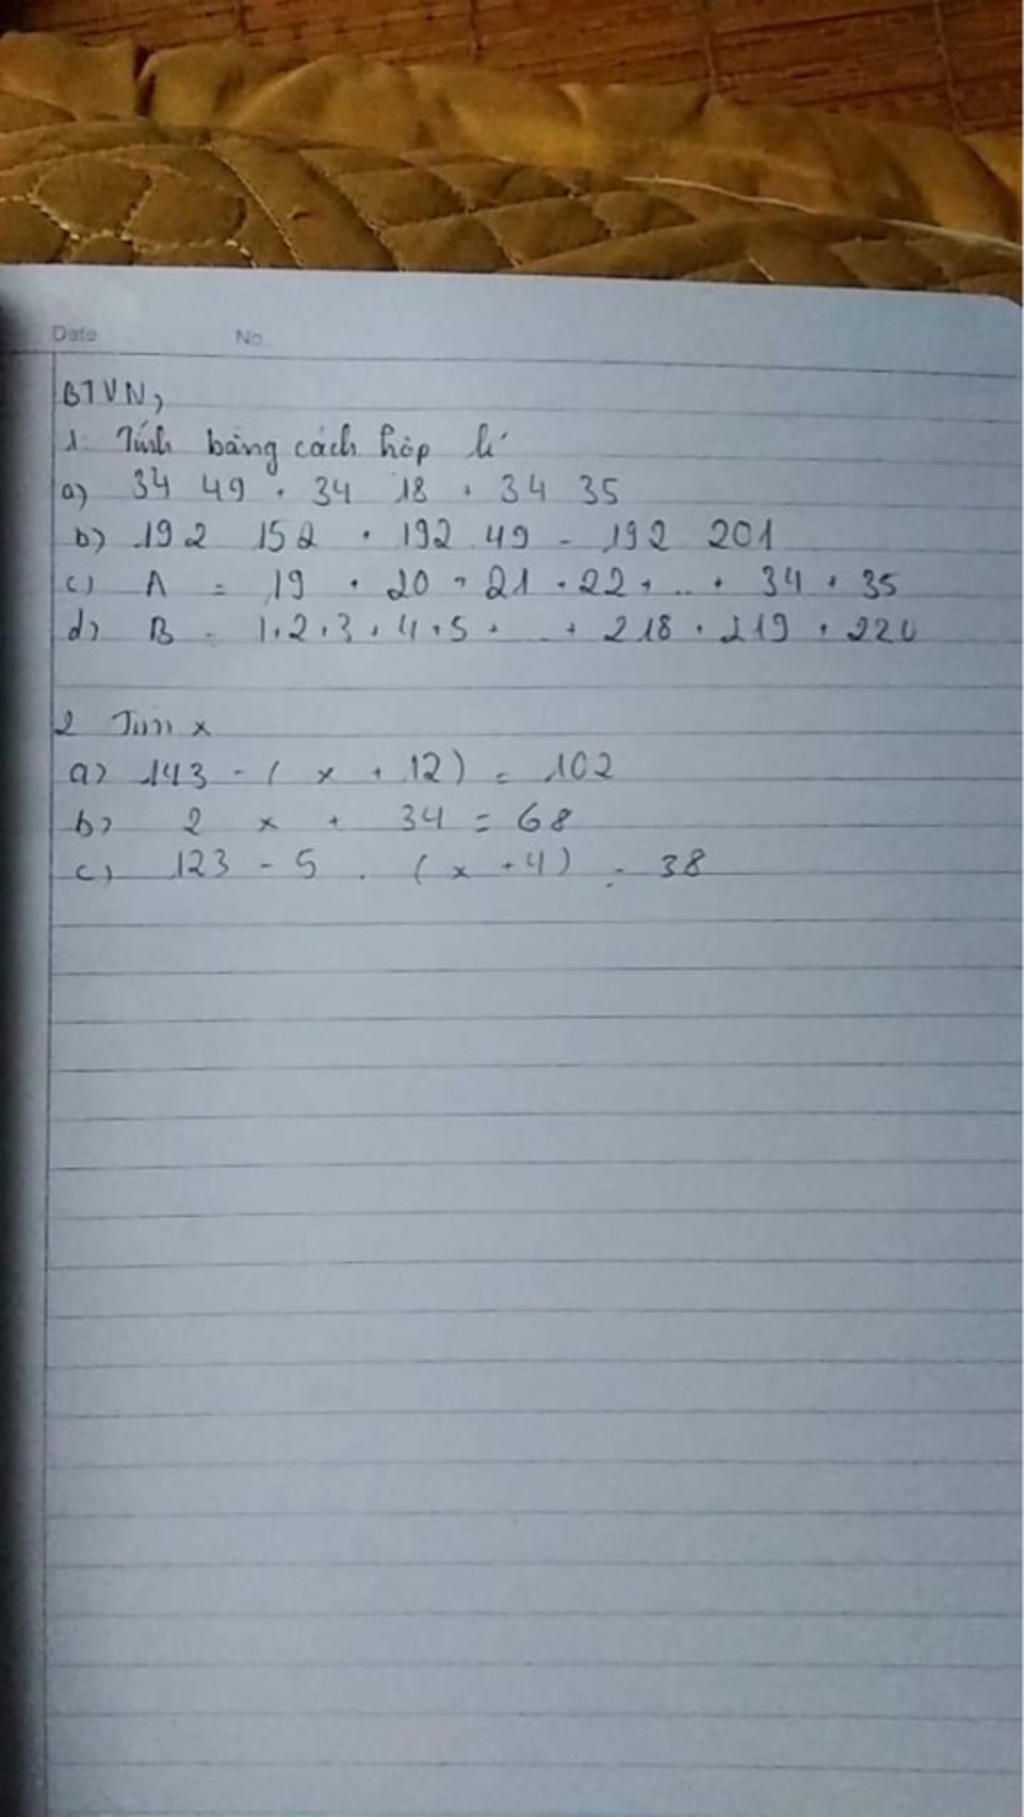 Date No.
BTVN,
1. Tính bằng cách hợp lí
a) 34 49 + 34 18 + 34 35
b) 192 152 + 192 49 - 192 201
c) A = 19 + 20 + 21 + 22 + ... + 34 + 35
d) B = 1 + 2 + 3 + 4 + 5 + ... + 218 + 219 + 220
2 Tìm x
a) 143 - ( x + 12) = 102
b) 2 x + 34 = 68
c) 123 - 5 . ( x + 4) = 38